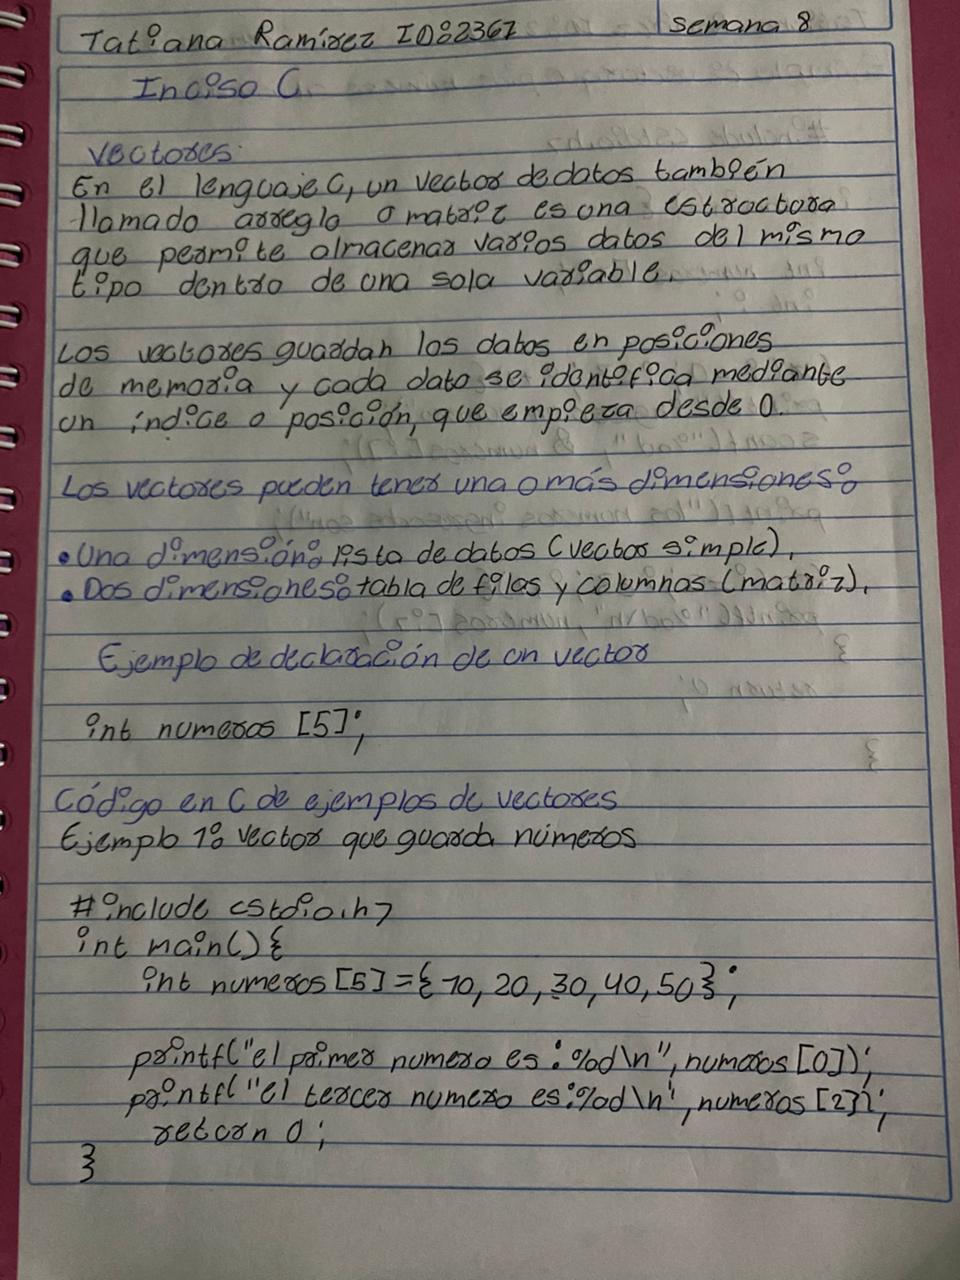 Tatiana Ramirez ID:2367
semana 8
Inciso C
Vectores:
En el lenguaje C, un vector de datos también
llamado arreglo o matriz es una estructura
que permite almacenar varios datos del mismo
tipo dentro de una sola variable.
Los vectores guardan los datos en posiciones
de memoria y cada dato se identifica mediante
un índice o posición, que empieza desde 0.
Los vectores pueden tener una o más dimensiones:
• Una dimensión: lista de datos (vector simple).
• Dos dimensiones: tabla de filas y columnas (matriz).
Ejemplo de declaración de un vector
int numeros [5];
Código en C de ejemplos de vectores
Ejemplo 1: vector que guarda números
#include <stdio.h>
int main() {
int numeros [5] = { 10, 20, 30, 40, 50 };
printf("el primer numero es: %d\n", numeros [0]);
printf("el tercer numero es: %d\n", numeros [2]);
return 0;
}